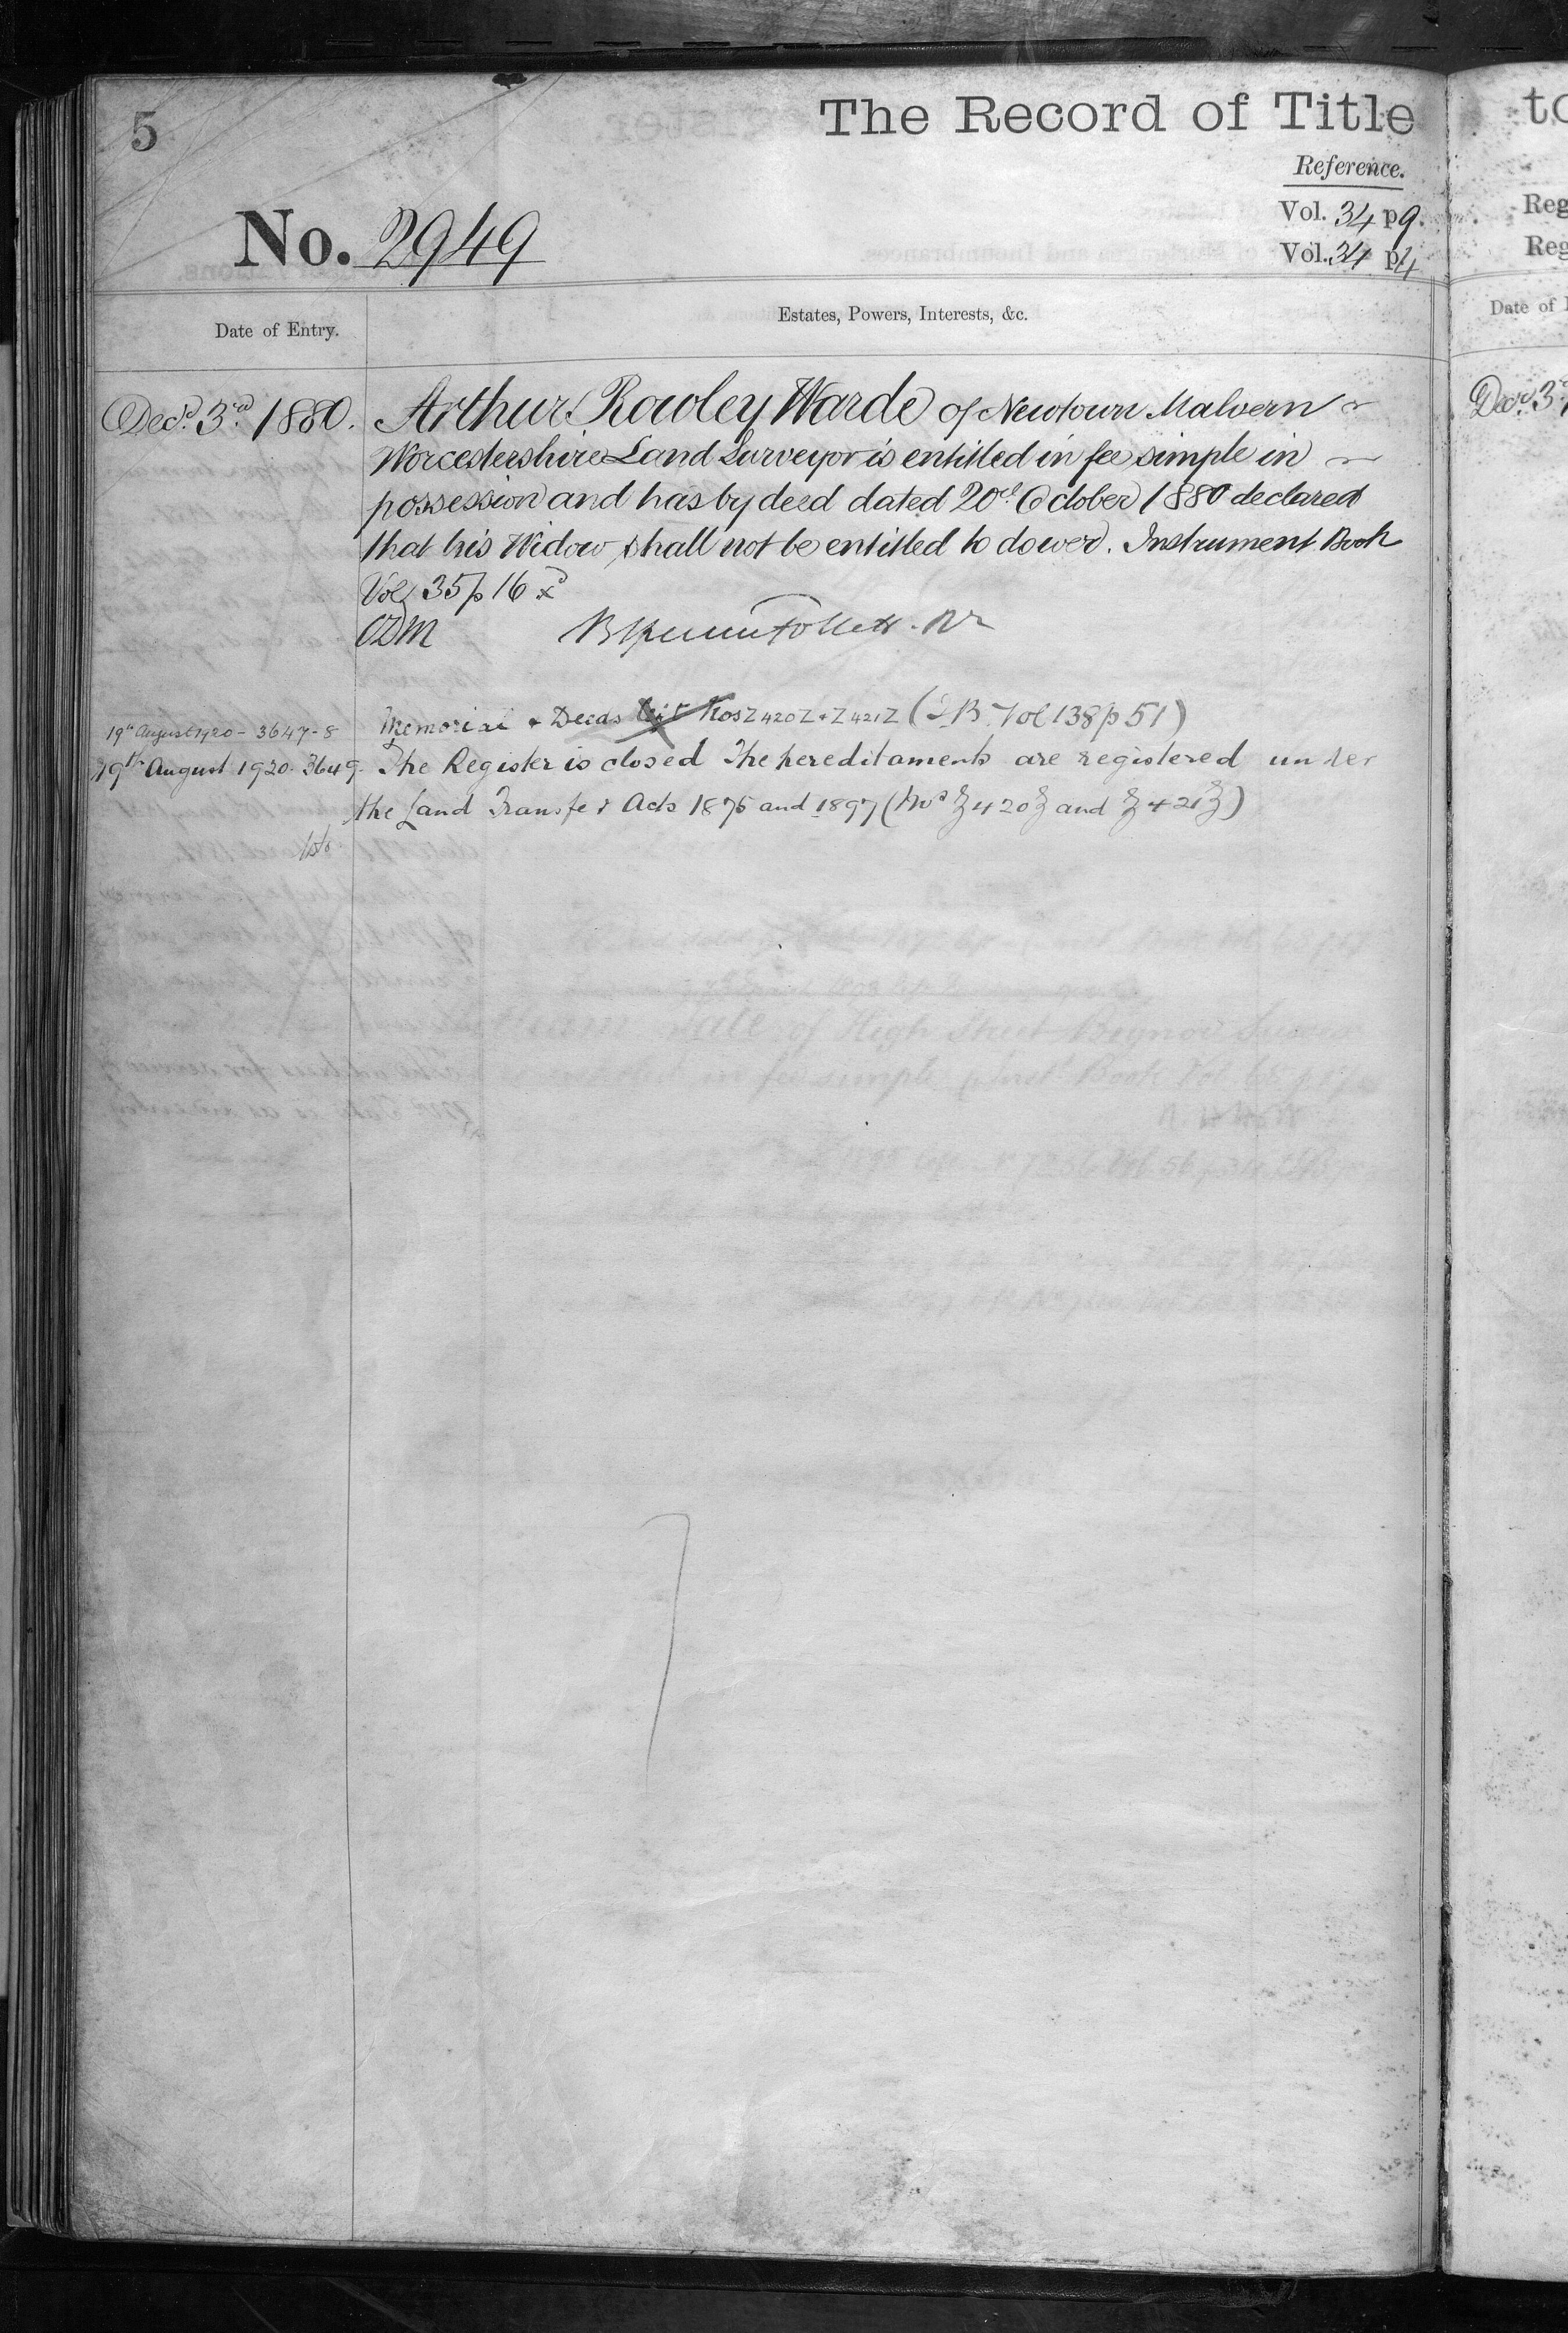 5
The Record of Title
Reference.
Vol. 34 p 9.
Vol. 34 p 14
No. 2949
Date of Entry.
Estates, Powers, Interests, &c.
Decr. 3rd 1880.
Arthur Rowley Warde of Newtown Malvern
Worcestershire Land Surveyor is entitled in fee simple in
possession and has by deed dated 20th October 1880 declared
that his Widow shall not be entitled to dower. Instrument Book
Vol 35 p 16
19th August 1920 - 3647-8
Memorial + Deeds Nos Z420Z + Z421Z (I.B. Vol 138 p 51)
19th August 1920. 3649.
The Register is closed The hereditaments are registered under
the Land Transfer Acts 1875 and 1897 (Nos Z420Z and Z421Z)
to
Reg
Reg
Date of
Decr. 3